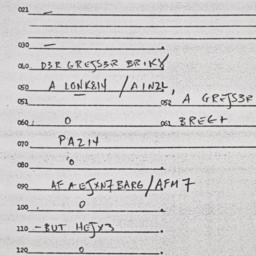 021 —
030 —
040 D3R GREJS3R BRIK8
050 A LONK814 / A1N2L,
051 052 A GREJS3R
060 0 061 BREG+
070 PA214
080 0
090 AFAEJXN7BARG/AFM7
100 0
110 -BUT HEJX3
120 0